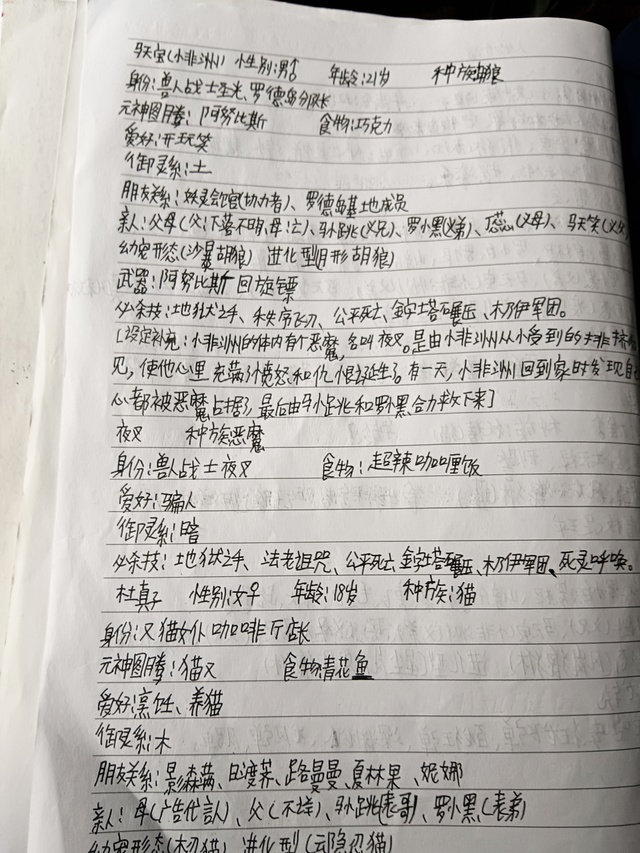 马天宝(小非洲) 性别:男♂ 年龄:21岁 种族:胡狼
身份:兽人战士圣光、罗德岛分队长
元神图腾:阿努比斯 食物:巧克力
爱好:开玩笑
御灵系:土
朋友关系:妖灵会馆(协力者)、罗德岛基地成员
亲人:父母(父:下落不明,母:亡)、马小跳(义兄)、罗小黑(义弟)、丁蕊(义母)、马天笑(义父)
幼宠形态(沙暴胡狼) 进化型(月形胡狼)
武器:阿努比斯回旋镖
必杀技:地狱之手、秩序飞刃、公平死亡、金字塔碾压、木乃伊军团。
[设定补充:小非洲的体内有个恶魔,名叫夜叉。是由小非洲从小受到的排挤
见,使他心里充满了愤怒和仇恨诞生了。有一天,小非洲回到家时发现自
心都被恶魔占据了,最后由马小跳和罗小黑合力救下来]
夜叉 种族:恶魔
身份:兽人战士夜叉 食物:超辣咖喱饭
爱好:骗人
御灵系:暗
必杀技:地狱之手、法老诅咒、公平死亡、金字塔碾压、木乃伊军团、死灵呼唤。
杜真子 性别:女♀ 年龄:18岁 种族:猫
身份:又猫女仆咖啡厅店长
元神图腾:猫又 食物:青花鱼
爱好:烹饪、养猫
御灵系:木
朋友关系:影森满、日渡棻、路曼曼、夏林果、妮娜
亲人:母(广告代言人)、父(不详)、马小跳(表哥)、罗小黑(表弟)
幼宠形态(木刃猫) 进化型(云隐忍猫)